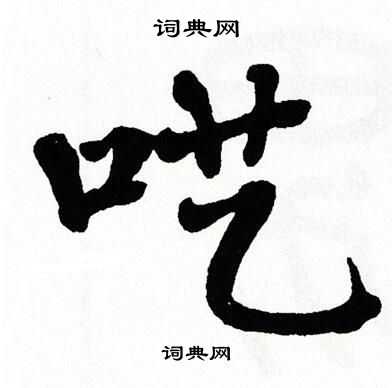 词典网
呓
词典网